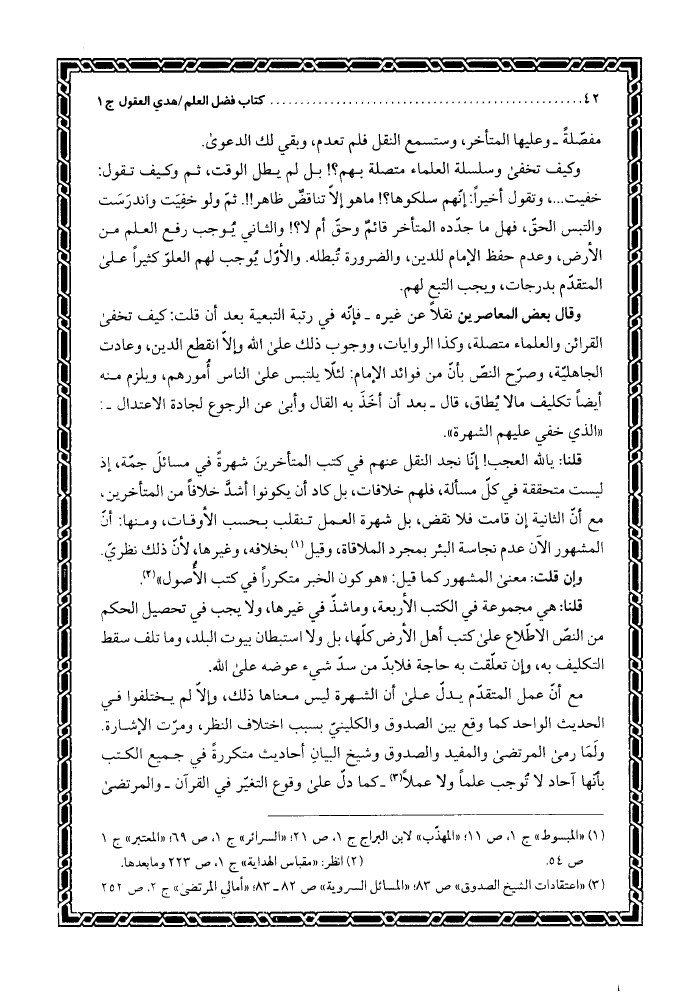 ٤٢ .................................................... كتاب فضل العلم/هدي العقول ج ١
مفصّلةً ـ وعليها المتأخر، وستسمع النقل فلم تعدم، وبقي لك الدعوىٰ.
وكيف تخفىٰ وسلسلة العلماء متصلة بهم؟! بل لم يطل الوقت، ثم وكيف تقول:
خفيت...، وتقول أخيراً: إنّهم سلكوها؟! ماهو إلاّ تناقضٌ ظاهر!!. ثمّ ولو خفِيَت واندرَسَت
والتبس الحقّ، فهل ما جدّده المتأخر قائمٌ وحقّ أم لا؟! والثاني يُوجب رفع العلم من
الأرض، وعدم حفظ الإمام للدين، والضرورة تُبطله. والأوّل يُوجب لهم العلوّ كثيراً علىٰ
المتقدّم بدرجات، ويجب التبع لهم.
وقال بعض المعاصرين نقلاً عن غيره ـ فإنّه في رتبة التبعية بعد أن قلت: كيف تخفىٰ
القرائن والعلماء متصلة، وكذا الروايات، ووجوب ذلك علىٰ الله وإلاّ انقطع الدين، وعادت
الجاهليّة، وصرّح النصّ بأنّ من فوائد الإمام: لئلّا يلتبس علىٰ الناس أُمورهم، ويلزم منه
أيضاً تكليف مالا يُطاق، قال ـ بعد أن أخَذَ به القال وأبىٰ عن الرجوع لجادة الاعتدال ـ :
«الذي خفي عليهم الشهرة».
قلنا: يالله العجب! إنّا نجد النقل عنهم في كتب المتأخرينَ شهرةً في مسائلَ جمّة، إذ
ليست متحققة في كلّ مسألة، فلهم خلافات، بل كاد أن يكونوا أشدَّ خلافاً من المتأخرين،
مع أنّ الثانية إن قامت فلا نقض، بل شهرة العمل تنقلب بحسب الأوقات، ومنها: أنّ
المشهور الآن عدم نجاسة البئر بمجرد الملاقاة، وقيل(١) بخلافه، وغيرها، لأنّ ذلك نظريّ.
وإن قلت: معنىٰ المشهور كما قيل: «هو كون الخبر متكرراً في كتب الأُصول»(٢).
قلنا: هي مجموعة في الكتب الأربعة، وماشذّ في غيرها، ولا يجب في تحصيل الحكم
من النصّ الاطّلاع علىٰ كتب أهل الأرض كلّها، بل ولا استبطان بيوت البلد، وما تلف سقط
التكليف به، وإن تعلّقت به حاجة فلابدّ من سدّ شيء عوضه علىٰ الله.
مع أنّ عمل المتقدّم يدلّ علىٰ أن الشهرة ليس معناها ذلك، وإلاّ لم يختلفوا في
الحديث الواحد كما وقع بين الصدوق والكلينيّ بسبب اختلاف النظر، ومرّت الإشارة.
ولَمَا رمىٰ المرتضىٰ والمفيد والصدوق وشيخ البيانِ أحاديث متكررةً في جميع الكتب
بأنّها آحاد لا تُوجب علماً ولا عملاً(٣) ـ كما دلّ علىٰ وقوع التغيّر في القرآن ـ والمرتضىٰ
(١) «المبسوط» ج ١، ص ١١؛ «المهذّب» لابن البراج ج ١، ص ٢١؛ «السرائر» ج ١، ص ٦٩؛ «المعتبر» ج ١
ص ٥٤. (٢) انظر: «مقباس الهداية» ج ١، ص ٢٢٣ ومابعدها.
(٣) «اعتقادات الشيخ الصدوق» ص ٨٣؛ «المسائل السروية» ص ٨٢ ـ ٨٣؛ «أمالي المرتضىٰ» ج ٢، ص ٢٥٢